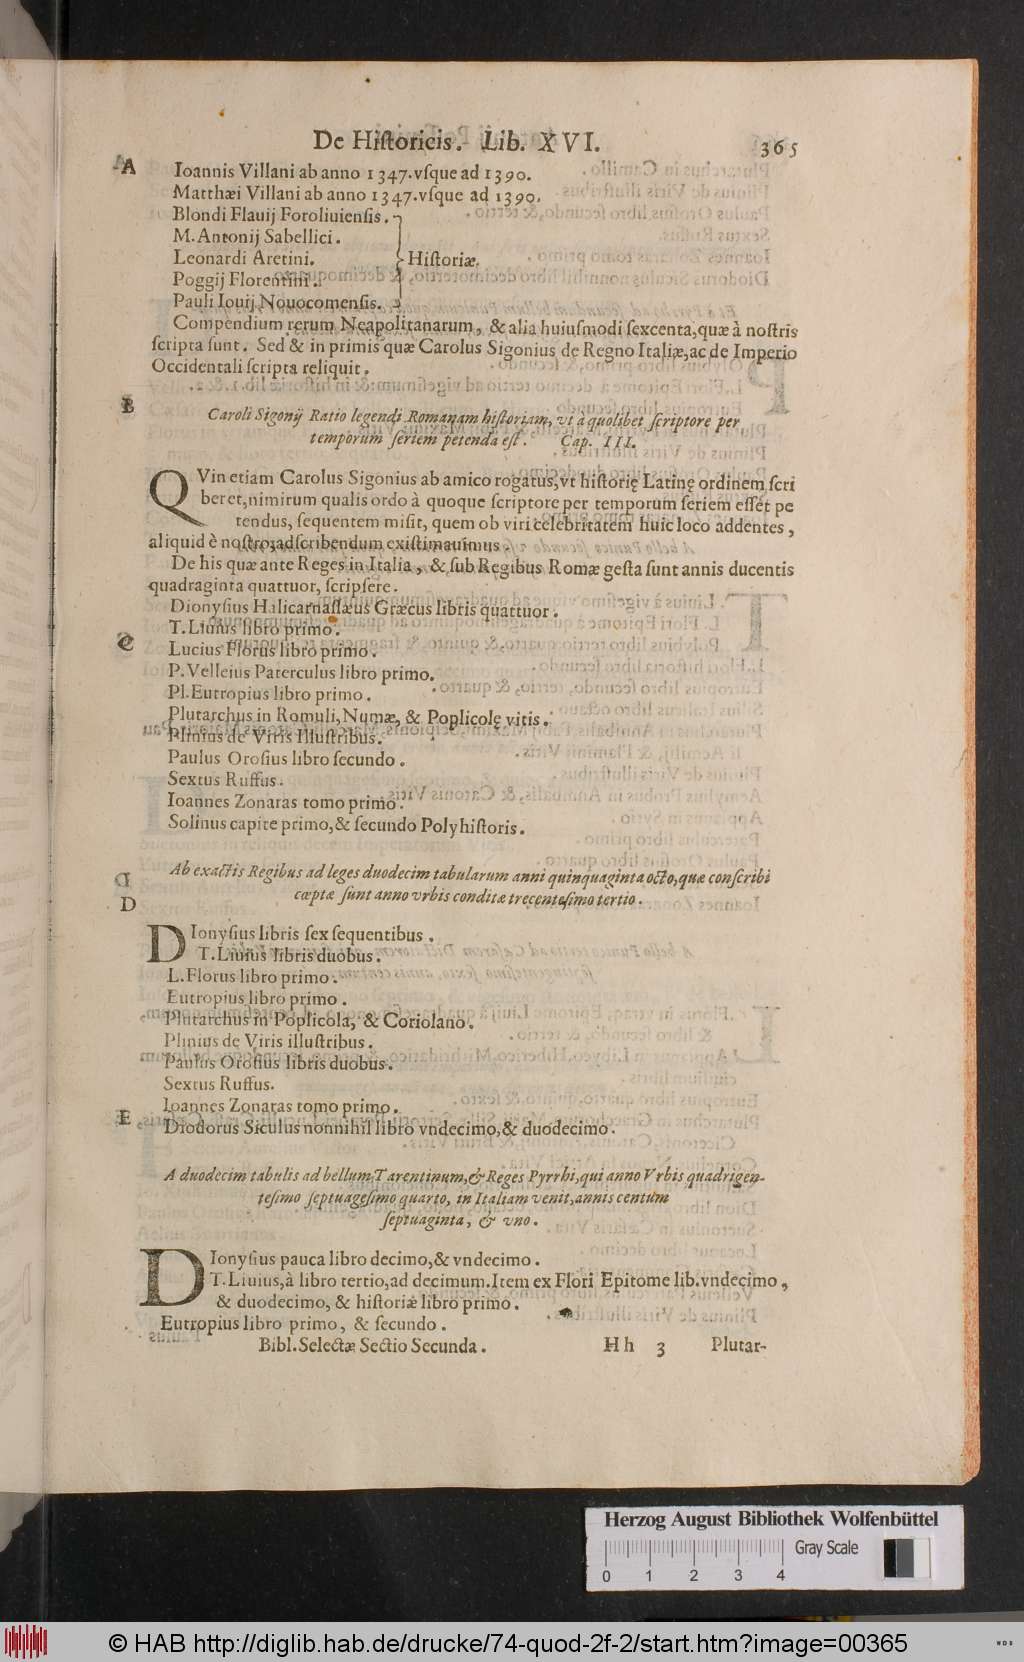 De Hiſtoricis. Lib. XVI. 365
A Ioannis Villani ab anno 1347. vſque ad 1390.
Matthæi Villani ab anno 1347. vſque ad 1390.
Blondi Flauij Foroliuienſis.
M. Antonij Sabellici.
Leonardi Aretini. Hiſtoriæ.
Poggij Florentini.
Pauli Iouij Nouocomenſis.
Compendium rerum Neapolitanarum, & alia huiuſmodi ſexcenta, quæ à noſtris
ſcripta ſunt. Sed & in primis quæ Carolus Sigonius de Regno Italiæ, ac de Imperio
Occidentali ſcripta reliquit.
B Caroli Sigonij Ratio legendi Romanam hiſtoriam, vt à quolibet ſcriptore per
temporum ſeriem petenda eſt. Cap. III.
QVin etiam Carolus Sigonius ab amico rogatus, vt hiſtorię Latinę ordinem ſcri
beret, nimirum qualis ordo à quoque ſcriptore per temporum ſeriem eſſet pe
tendus, ſequentem miſit, quem ob viri celebritatem huic loco addentes,
aliquid è noſtro adſcribendum exiſtimauimus.
De his quæ ante Reges in Italia, & ſub Regibus Romæ geſta ſunt annis ducentis
quadraginta quattuor, ſcripſere.
Dionyſius Halicarnaſſæus Græcus libris quattuor.
T. Liuius libro primo.
C Lucius Florus libro primo.
P. Velleius Paterculus libro primo.
Pl. Eutropius libro primo.
Plutarchus in Romuli, Numæ, & Poplicolę vitis.
Plinius de Viris Illuſtribus.
Paulus Oroſius libro ſecundo.
Sextus Ruffus.
Ioannes Zonaras tomo primo.
Solinus capite primo, & ſecundo Polyhiſtoris.
D Ab exactis Regibus ad leges duodecim tabularum anni quinquaginta octo, quæ conſcribi
cœptæ ſunt anno vrbis conditæ trecenteſimo tertio.
DIonyſius libris ſex ſequentibus.
T. Liuius libris duobus.
L. Florus libro primo.
Eutropius libro primo.
Plutarchus in Poplicola, & Coriolano.
Plinius de Viris illuſtribus.
Paulus Oroſius libris duobus.
Sextus Ruffus.
Ioannes Zonaras tomo primo.
E Diodorus Siculus nonnihil libro vndecimo, & duodecimo.
A duodecim tabulis ad bellum Tarentinum, & Reges Pyrrhi, qui anno Vrbis quadrigen-
teſimo ſeptuageſimo quarto, in Italiam venit, annis centum
ſeptuaginta, & vno.
DIonyſius pauca libro decimo, & vndecimo.
T. Liuius, à libro tertio, ad decimum. Item ex Flori Epitome lib. vndecimo,
& duodecimo, & hiſtoriæ libro primo.
Eutropius libro primo, & ſecundo.
Bibl. Selectæ Sectio Secunda. Hh 3 Plutar-
Herzog August Bibliothek Wolfenbüttel
Gray Scale
0 1 2 3 4
© HAB http://diglib.hab.de/drucke/74-quod-2f-2/start.htm?image=00365